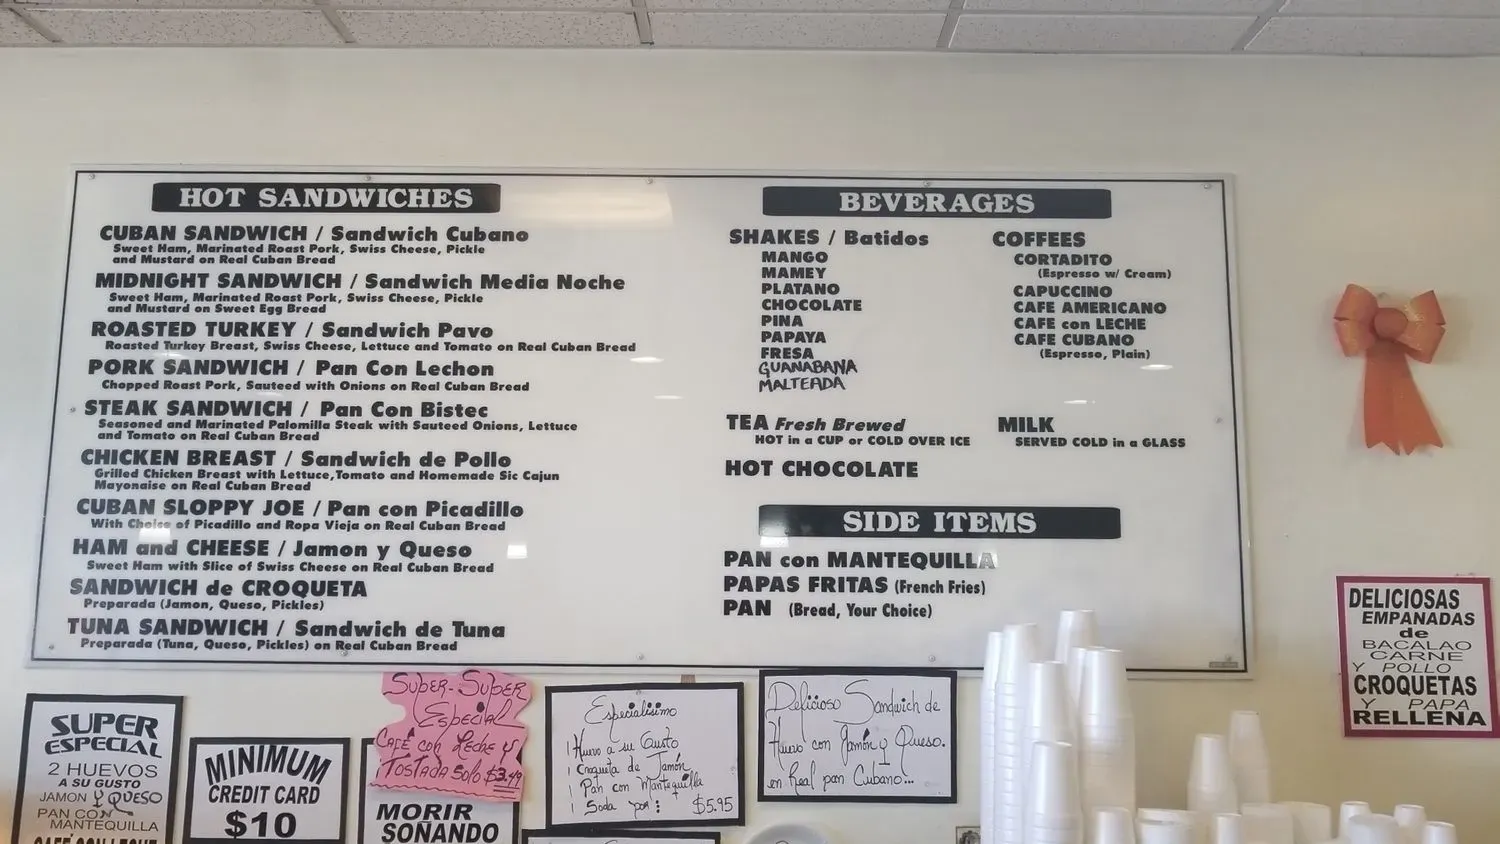 HOT SANDWICHES
CUBAN SANDWICH / Sandwich Cubano
Sweet Ham, Marinated Roast Pork, Swiss Cheese, Pickle
and Mustard on Real Cuban Bread
MIDNIGHT SANDWICH / Sandwich Media Noche
Sweet Ham, Marinated Roast Pork, Swiss Cheese, Pickle
and Mustard on Sweet Egg Bread
ROASTED TURKEY / Sandwich Pavo
Roasted Turkey Breast, Swiss Cheese, Lettuce and Tomato on Real Cuban Bread
PORK SANDWICH / Pan Con Lechon
Chopped Roast Pork, Sauteed with Onions on Real Cuban Bread
STEAK SANDWICH / Pan Con Bistec
Seasoned and Marinated Palomilla Steak with Sauteed Onions, Lettuce
and Tomato on Real Cuban Bread
CHICKEN BREAST / Sandwich de Pollo
Grilled Chicken Breast with Lettuce, Tomato and Homemade Sic Cajun
Mayonaise on Real Cuban Bread
CUBAN SLOPPY JOE / Pan con Picadillo
With Choise of Picadillo and Ropa Vieja on Real Cuban Bread
HAM and CHEESE / Jamon y Queso
Sweet Ham with Slice of Swiss Cheese on Real Cuban Bread
SANDWICH de CROQUETA
Preparada (Jamon, Queso, Pickles)
TUNA SANDWICH / Sandwich de Tuna
Preparada (Tuna, Queso, Pickles) on Real Cuban Bread
BEVERAGES
SHAKES / Batidos
MANGO
MAMEY
PLATANO
CHOCOLATE
PINA
PAPAYA
FRESA
GUANABANA
MALTEADA
COFFEES
CORTADITO
(Espresso w/ Cream)
CAPUCCINO
CAFE AMERICANO
CAFE con LECHE
CAFE CUBANO
(Espresso, Plain)
TEA Fresh Brewed
HOT in a CUP or COLD OVER ICE
MILK
SERVED COLD in a GLASS
HOT CHOCOLATE
SIDE ITEMS
PAN con MANTEQUILLA
PAPAS FRITAS (French Fries)
PAN (Bread, Your Choice)
DELICIOSAS
EMPANADAS
de
BACALAO
CARNE
Y POLLO
CROQUETAS
Y PAPA
RELLENA
SUPER
ESPECIAL
2 HUEVOS
A SU GUSTO
JAMON Y QUESO
PAN CON
MANTEQUILLA
CAFE CON LECHE
MINIMUM
CREDIT CARD
$10
Super-Super
Especial
Café con Leche y
¡Tostada Solo $3.49
MORIR
SOÑANDO
Especialisimo
1 Huevo a su Gusto
1 Croqueta de Jamón
1 Pan con Mantequilla
1 Soda por: $5.95
Delicioso Sandwich de
Huevo con Jamón y Queso.
en Real pan Cubano...